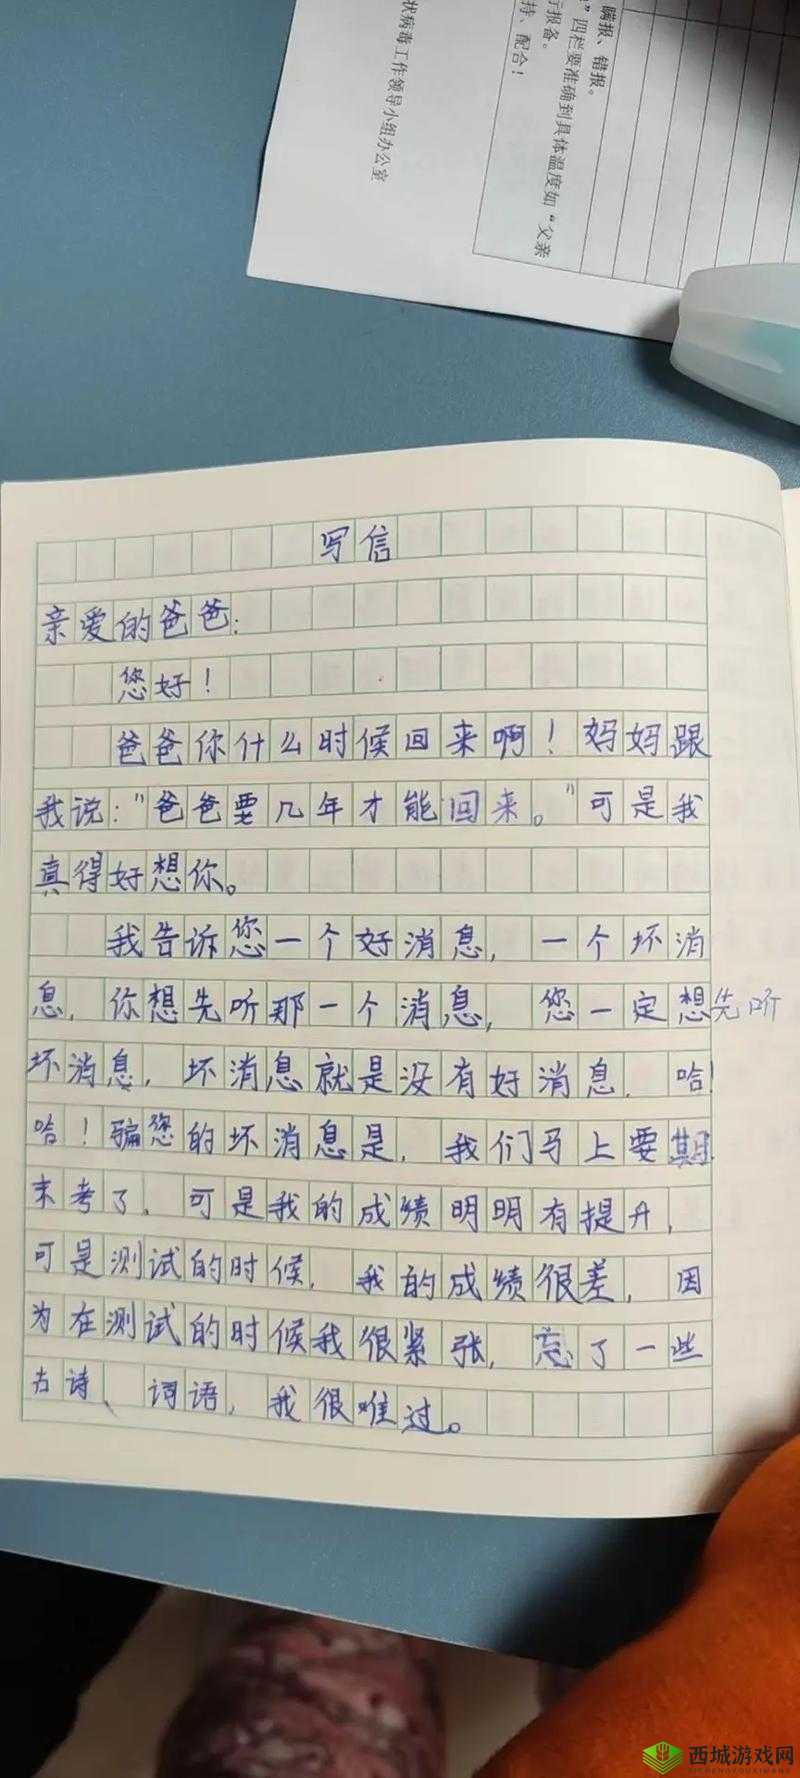 瞒报、错报。
”四栏要准确到具体温度如“父亲
行报备。
持、配合！
状病毒工作领导小组办公室
写信
亲爱的爸爸：
您好！
爸爸你什么时候回来啊！妈妈跟
我说：“爸爸要几年才能回来。”可是我
真得好想你。
我告诉您一个好消息，一个坏消
息，你想先听那一个消息，您一定想先听
坏消息，坏消息就是没有好消息，哈
哈！骗您的坏消息是，我们马上要期
末考了，可是我的成绩明明有提升，
可是测试的时候，我的成绩很差，因
为在测试的时候我很紧张，忘了一些
古诗、词语，我很难过。
西城游戏网
XICHENGYOUXIWANG